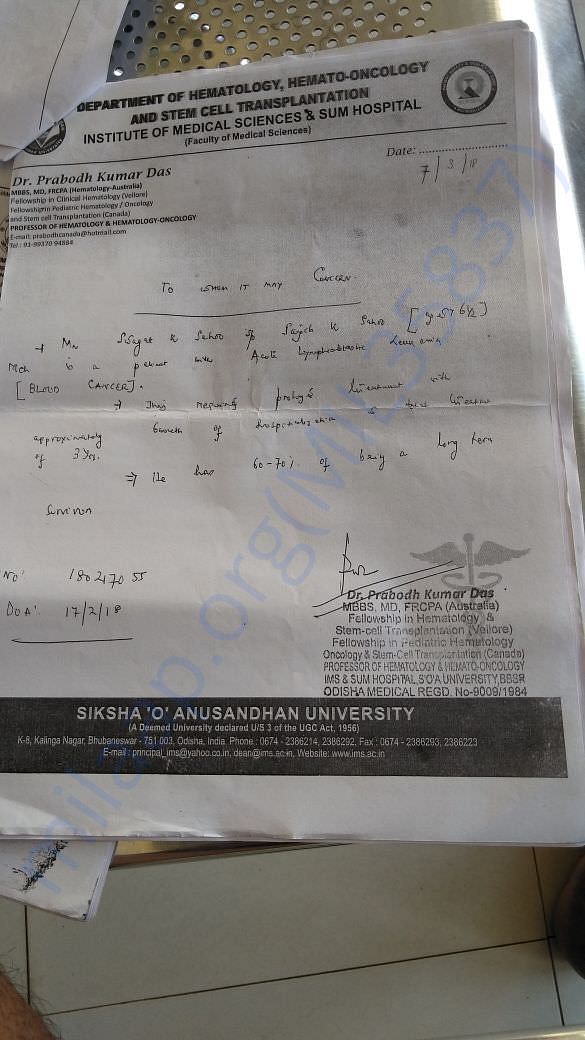 DEPARTMENT OF HEMATOLOGY, HEMATO-ONCOLOGY
AND STEM CELL TRANSPLANTATION
INSTITUTE OF MEDICAL SCIENCES & SUM HOSPITAL
(Faculty of Medical Sciences)
Date: ..........................
7/3/18
Dr. Prabodh Kumar Das
MBBS, MD, FRCPA (Hematology-Australia)
Fellowship in Clinical Hematology (Vellore)
Fellowship in Pediatric Hematology / Oncology
and Stem cell Transplantation (Canada)
PROFESSOR OF HEMATOLOGY & HEMATO-ONCOLOGY
E-mail: prabodhcanada@hotmail.com
Tel : 91-99370 94884
To whom it may Concern.
K Sahoo S/o K Sahoo
is a patient with Acute Lymphoblastic Leukaemia
[BLOOD CANCER].
⇒ requiring treatment with
approximately of hospitalization & total
of 3 yrs.
⇒ He has 60-70% of being a long term
Survivor
NO: 18027055
DOA: 17/2/18
Dr. Prabodh Kumar Das
MBBS, MD, FRCPA (Australia)
Fellowship in Hematology &
Stem-cell Transplantation (Vellore)
Fellowship in Pediatric Hematology
Oncology & Stem-Cell Transplantation (Canada)
PROFESSOR OF HEMATOLOGY & HEMATO-ONCOLOGY
IMS & SUM HOSPITAL, S'O'A UNIVERSITY, BBSR
ODISHA MEDICAL REGD. No-9009/1984
SIKSHA 'O' ANUSANDHAN UNIVERSITY
(A Deemed University declared U/S 3 of the UGC Act, 1956)
K-8, Kalinga Nagar, Bhubaneswar - 751 003, Odisha, India. Phone : 0674 - 2386214, 2386292, Fax : 0674 - 2386293, 2386223
E-mail : principal_ims@yahoo.co.in, dean@ims.ac.in, Website: www.ims.ac.in
milaap.org(MIL35837)